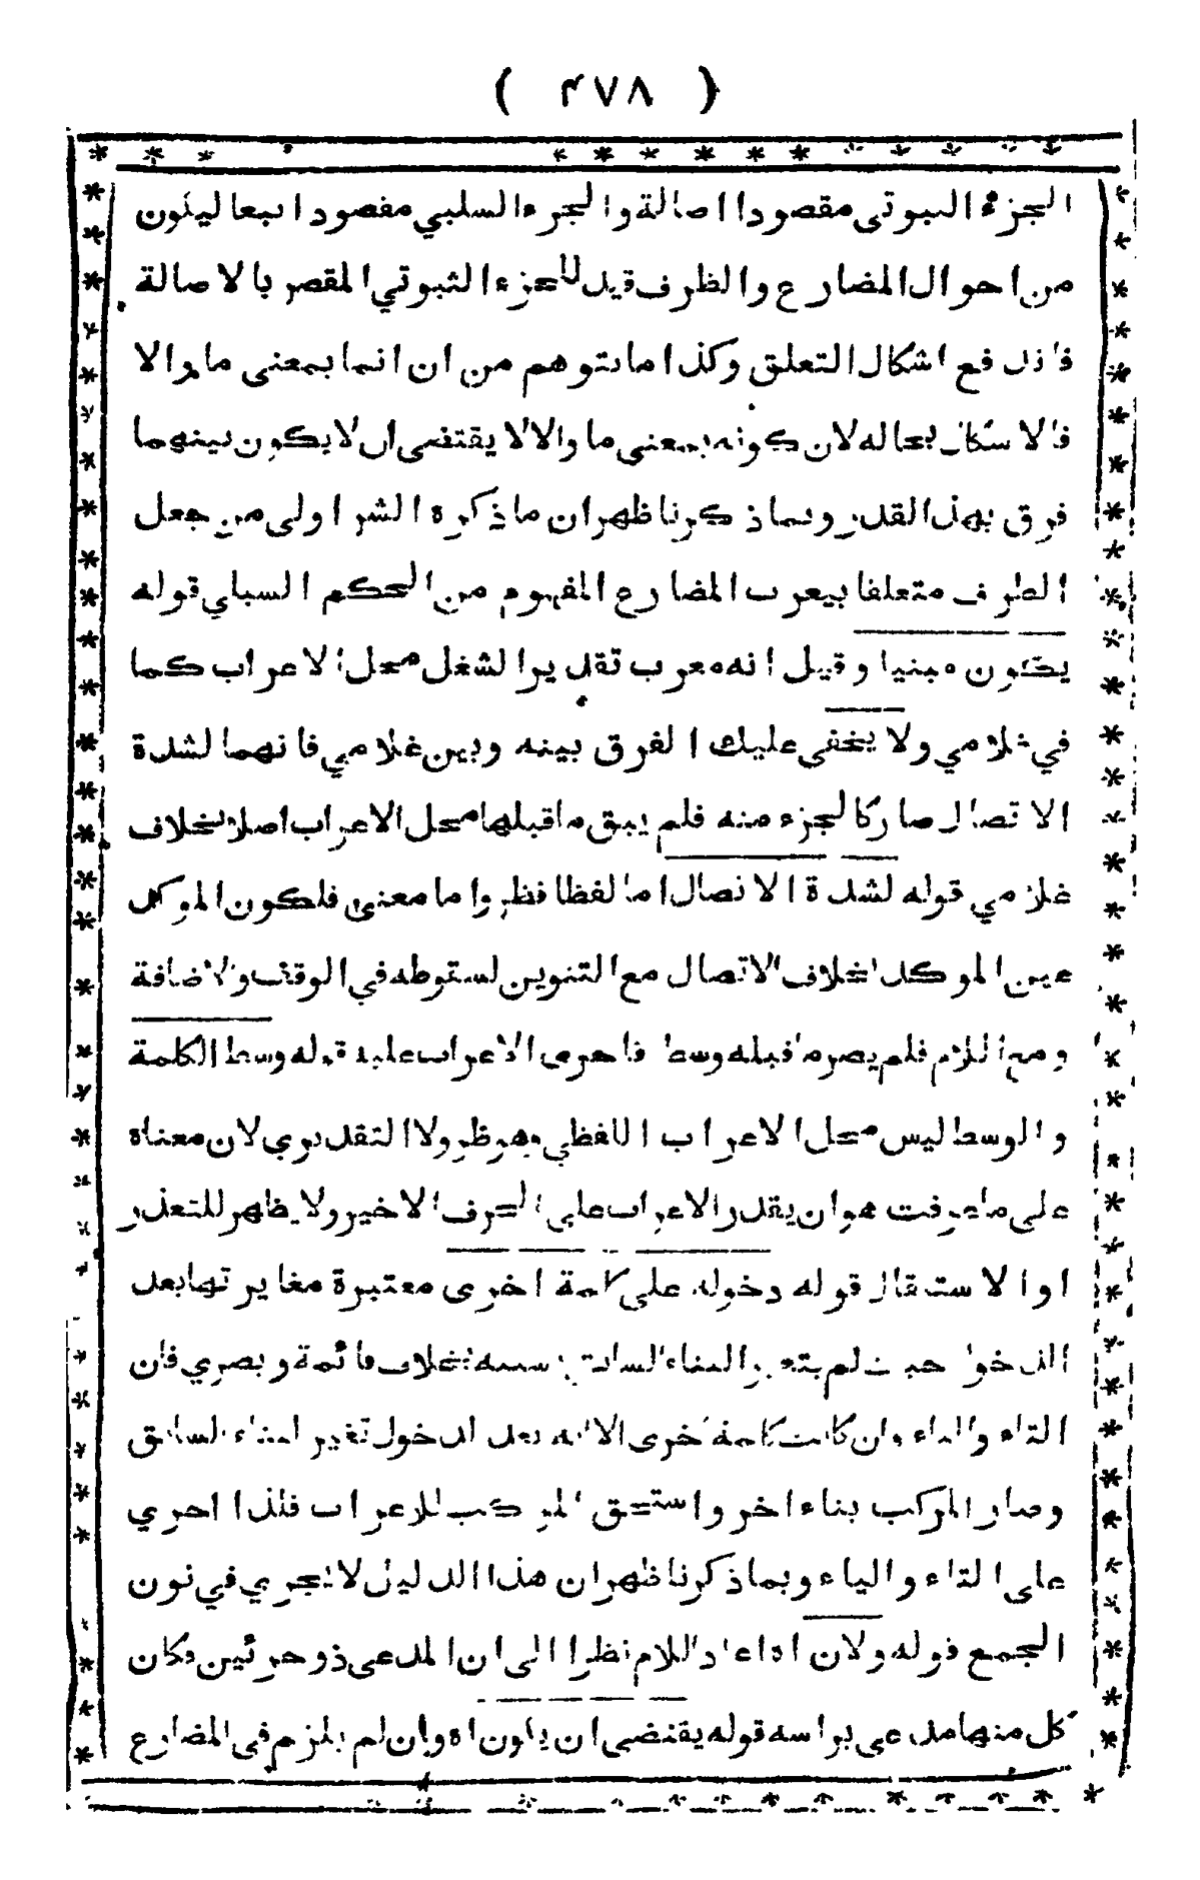 ( ۴۷۸ )
الجزء الثبوتى مقصودا اصالة والجزء السلبي مقصودا تبعا ليكون
من احوال المضارع والظرف قيد للجزء الثبوتي المقصر بالاصالة
فاندفع اشكال التعلق وكذا مايتوهم من ان انما بمعنى ما والا
فالاشكال بحاله لان كونه بمعنى ما والا لا يقتضى ان لا يكون بينهما
فرق بهذا القدر وبما ذكرنا ظهر ان ما ذكره الشر اولى من جعل
الظرف متعلقا بيعرب المضارع المفهوم من الحكم السلبي قوله
يكون مبنيا وقيل انه معرب تقديرا لشغل محل الاعراب كما
في غلامي ولا يخفى عليك الفرق بينه وبين غلامي فانهما لشدة
الاتصال صار كالجزء منه فلم يبق ماقبلها محل الاعراب اصلا بخلاف
غلامي قوله لشدة الاتصال اما لفظا فظر واما معنى فلكون الموكد
عين الموكد بخلاف الاتصال مع التنوين لسقوطه في الوقف والاضافة
ومع اللام فلم يصر ما قبله وسطا فاجرى الاعراب عليه قوله وسط الكلمة
والوسط ليس محل الاعراب اللفظي وهو ظر ولا التقديري لان معناه
على ماعرفت هو ان يقدر الاعراب على الحرف الاخير ولا يظهر للتعذر
او الاستثقال قوله دخوله على كلمة اخرى معتبرة مغايرتها بعد
الدخول حيث لم يتغير البناء السابق بسببه بخلاف قائمة وبصري فان
التاء والياء وان كانت كلمة اخرى الا انه بعد الدخول تغير البناء السابق
وصار المركب بناء اخر واستحق المركب للاعراب فلذا اجري
على التاء والياء وبما ذكرنا ظهر ان هذا الدليل لا يجري في نون
الجمع قوله ولان اداعاد اللام نظرا الى ان المدعى ذو جزئين فكان
كل منهما مدعى براسه قوله يقتضى ان يكون اه وان لم يلزم في المضارع